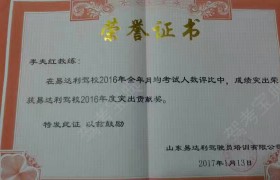 荣誉证书
李天红教练：
在易达利驾校2016年全年月均考试人数评比中，成绩突出荣
获易达利驾校2016年度突出贡献奖。
特发此证 以兹鼓励
山东易达利驾驶员培训有限公司
2017年1月13日